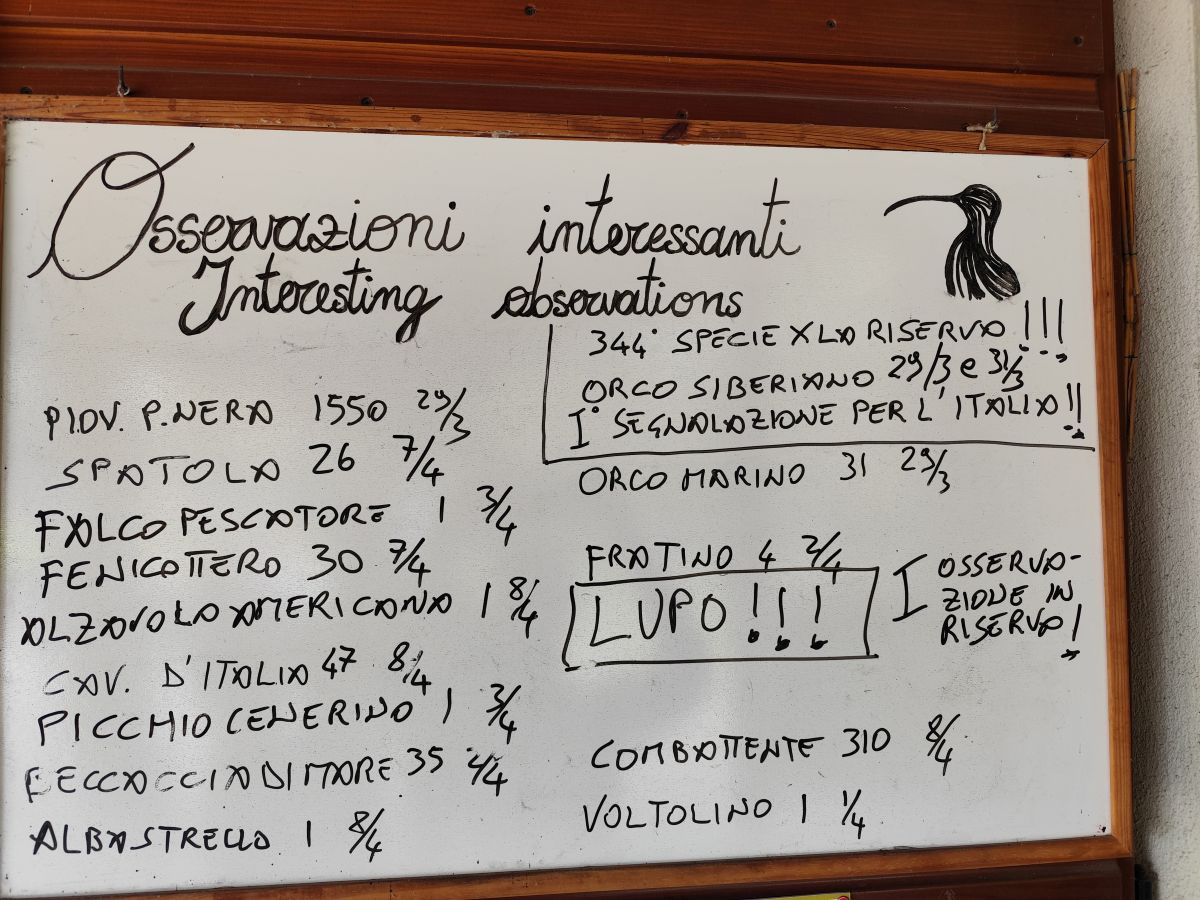 Osservazioni interessanti
Interesting observations
344° SPECIE X LA RISERVA !!!
ORCO SIBERIANO 29/3 e 31/3
I° SEGNALAZIONE PER L'ITALIA!!
PIOV. P.NERA 1550 29/3
SPATOLA 26 7/4
FALCO PESCATORE 1 3/4
FENICOTTERO 30 7/4
ALZAVOLA AMERICANA 1 8/4
CAV. D'ITALIA 47 8/4
PICCHIO CENERINO 1 3/4
BECCACCIA DI MARE 35 4/4
ALBASTRELLO 1 8/4
ORCO MARINO 31 29/3
FRATINO 4 2/4
LUPO !!!
I OSSERVA-
ZIONE IN
RISERVA!
COMBATTENTE 310 8/4
VOLTOLINO 1 1/4